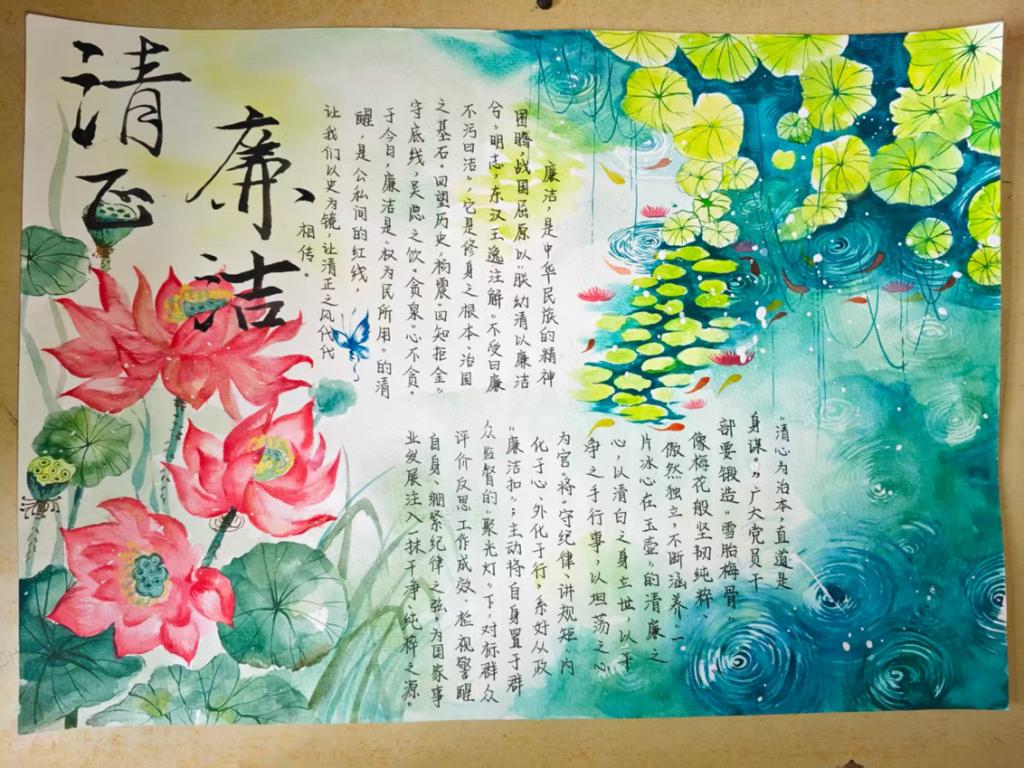 清正
廉洁
廉洁，是中华民族的精神
图腾，战国屈原以“朕幼清以廉洁
兮”明志，东汉王逸注解“不受曰廉
不污曰洁”，它是修身之根本、治国
之基石。回望历史，杨震“四知拒金”
守底线，吴隐之饮“贪泉”心不贪。
于今日，廉洁是“权为民所用”的清
醒，是公私间的红线，
让我们以史为镜，让清正之风代代
相传。
“清心为治本，直道是
身谋。”广大党员干
部要锻造“雪胎梅骨”
像梅花般坚韧纯粹、
傲然独立，不断涵养“一
片冰心在玉壶”的清廉之
心，以清白之身立世，以干
净之手行事，以坦荡之心
为官。将“守纪律、讲规矩”内
化于心、外化于行，系好从政
“廉洁扣”；主动将自身置于群
众监督的“聚光灯”下，对标群众
评价反思工作成效、检视警醒
自身、绷紧纪律之弦，为国家事
业发展注入一抹干净、纯粹之源。